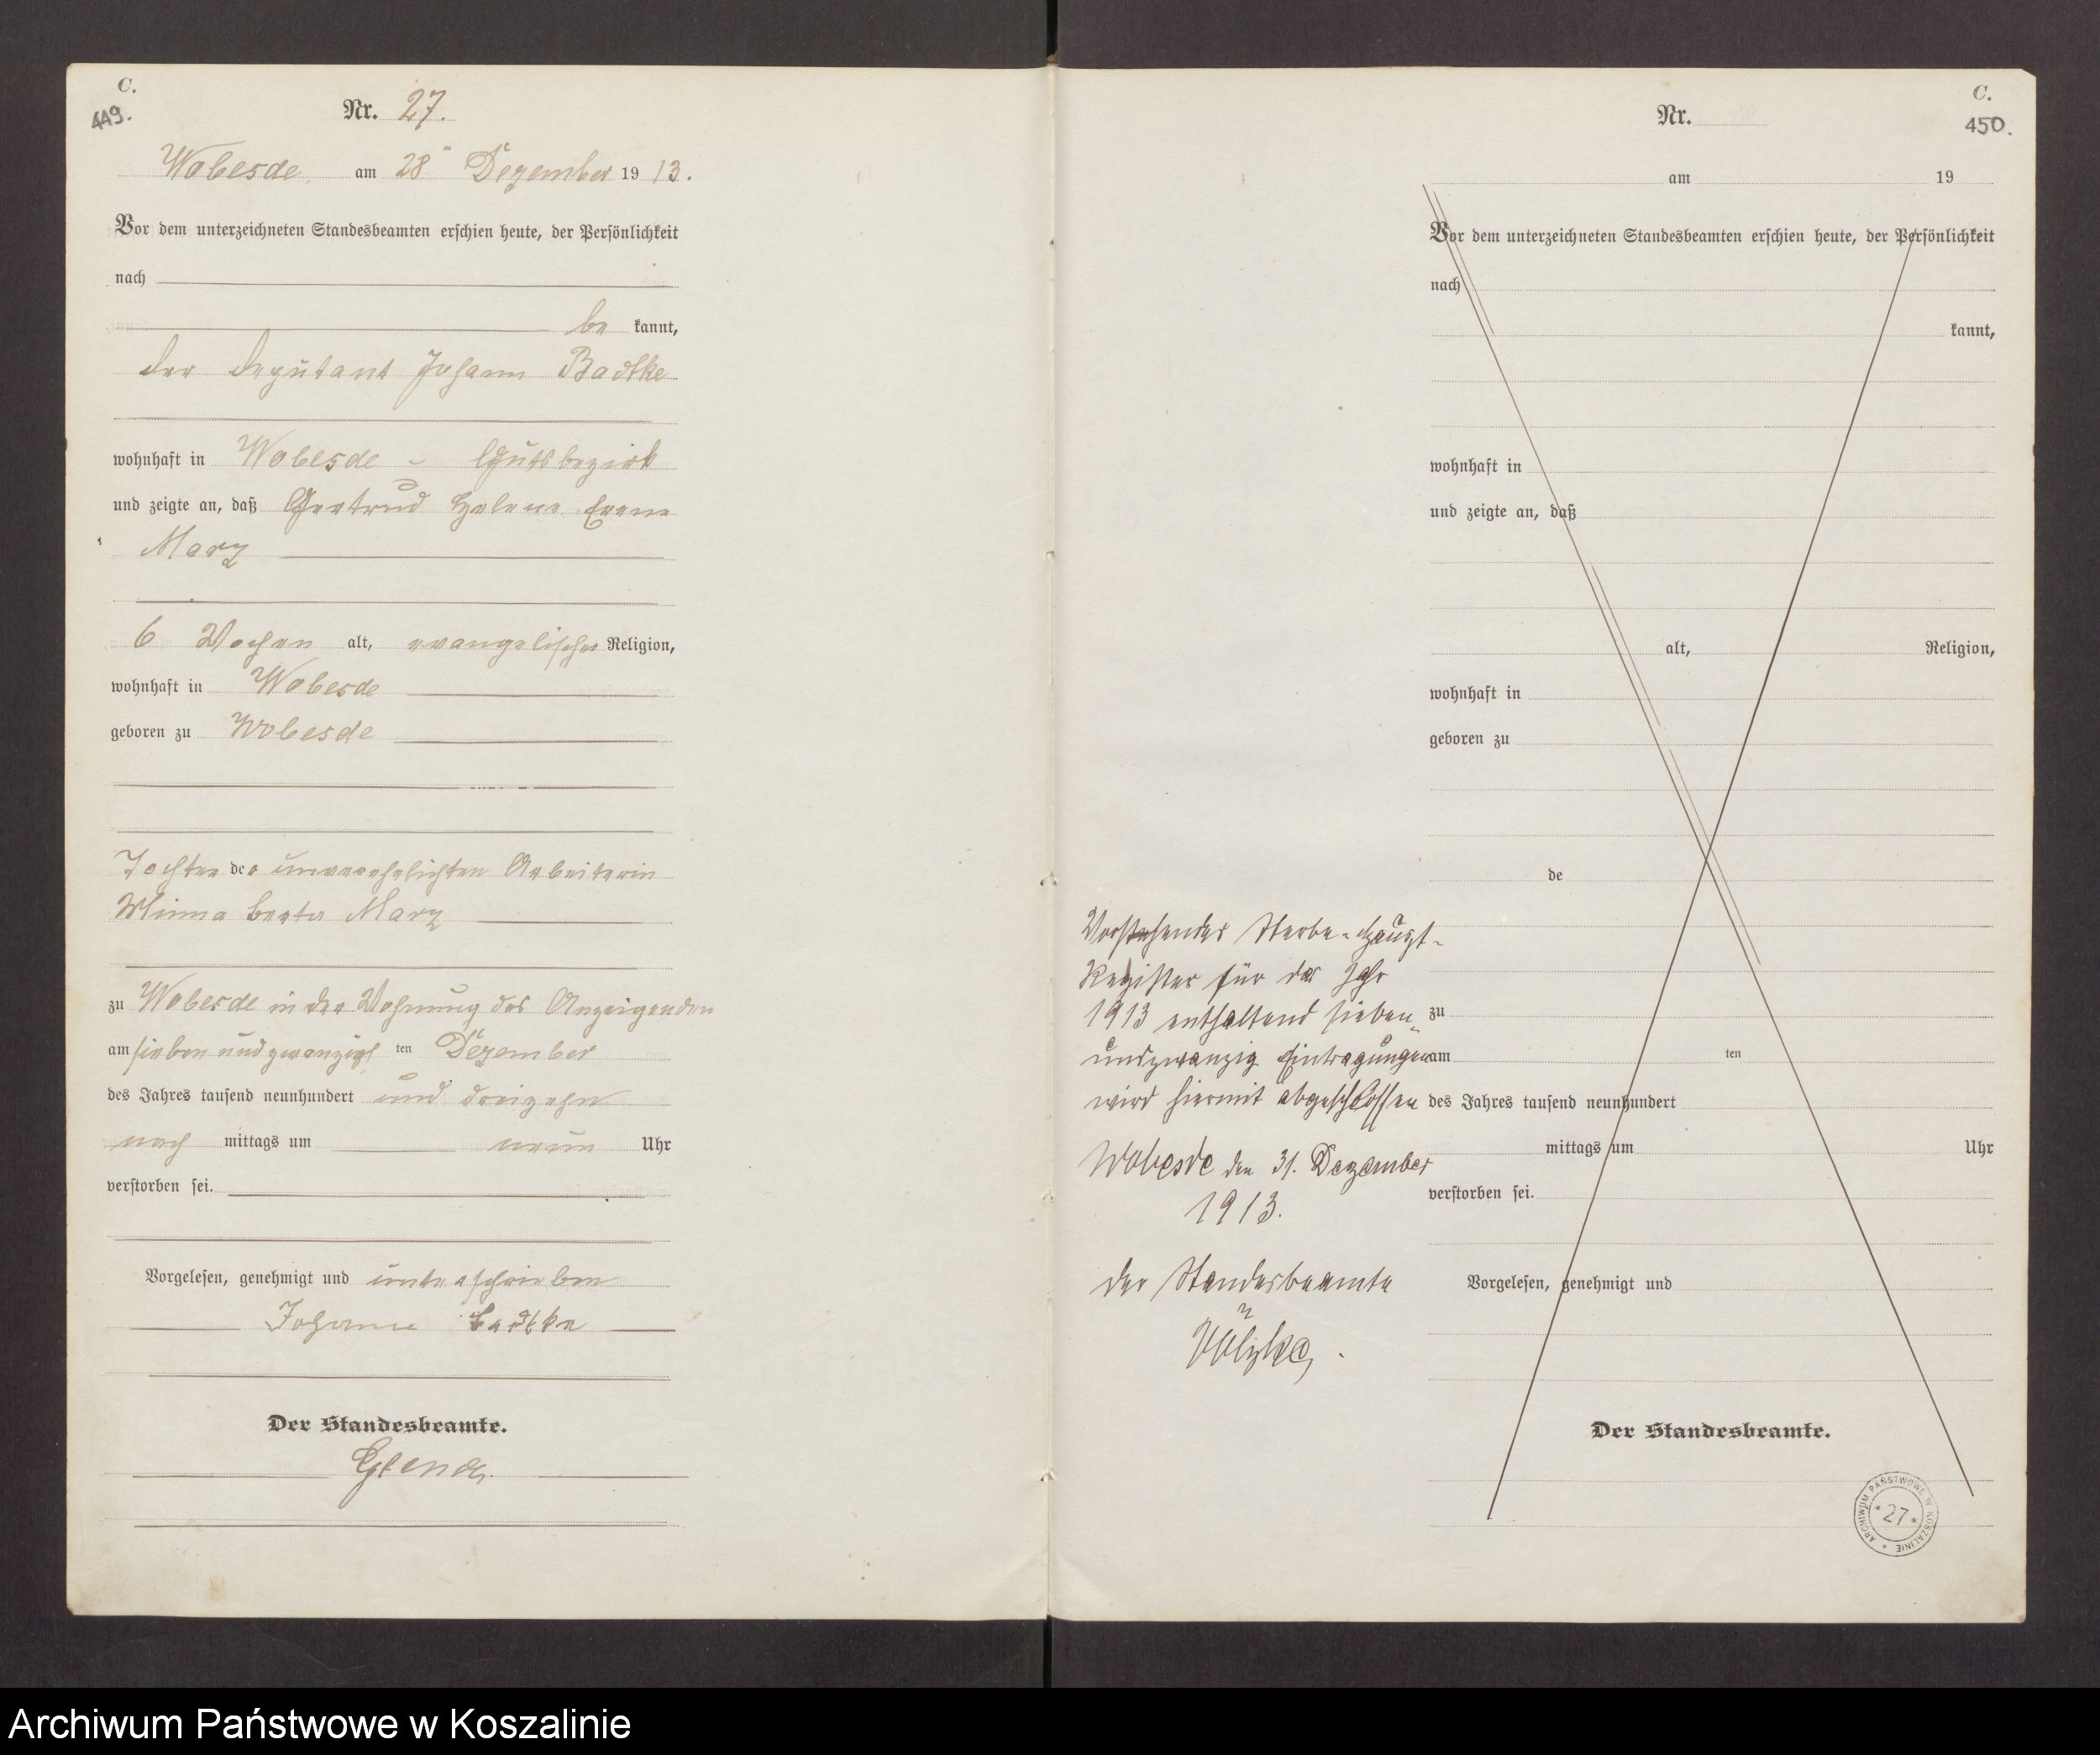 C.
449.
Nr. 27.
Wobesde am 28ten Dezember 1913.
Vor dem unterzeichneten Standesbeamten erschien heute, der Persönlichkeit
nach
be kannt,
der Deputant Johann Badtke
wohnhaft in Wobesde - Gutsbezirk
und zeigte an, daß Gertrud Helene Erene
Marz
6 Wochen alt, evangelischer Religion,
wohnhaft in Wobesde
geboren zu Wobesde
Tochter der unverehelichten Arbeiterin
Minna Berta Marz
zu Wobesde in der Wohnung des Anzeigenden
am sieben und zwanzigsten Dezember
des Jahres tausend neunhundert und dreizehn
nach mittags um neun Uhr
verstorben sei.
Vorgelesen, genehmigt und unterschrieben
Johann Badtke
Der Standesbeamte.
C.
450.
Nr.
am 19
Vor dem unterzeichneten Standesbeamten erschien heute, der Persönlichkeit
nach
kannt,
wohnhaft in
und zeigte an, daß
alt, Religion,
wohnhaft in
geboren zu
de
zu
am ten
des Jahres tausend neunhundert
mittags um Uhr
verstorben sei.
Vorgelesen, genehmigt und
Der Standesbeamte.
Vorstehendes Sterbe-Haupt-
Register für das Jahr
1913 enthaltend sieben-
undzwanzig Eintragungen
wird hiermit abgeschlossen
Wobesde den 31. Dezember
1913.
Der Standesbeamte
ARCHIWUM PAŃSTWOWE W KOSZALINIE
*27*
Archiwum Państwowe w Koszalinie